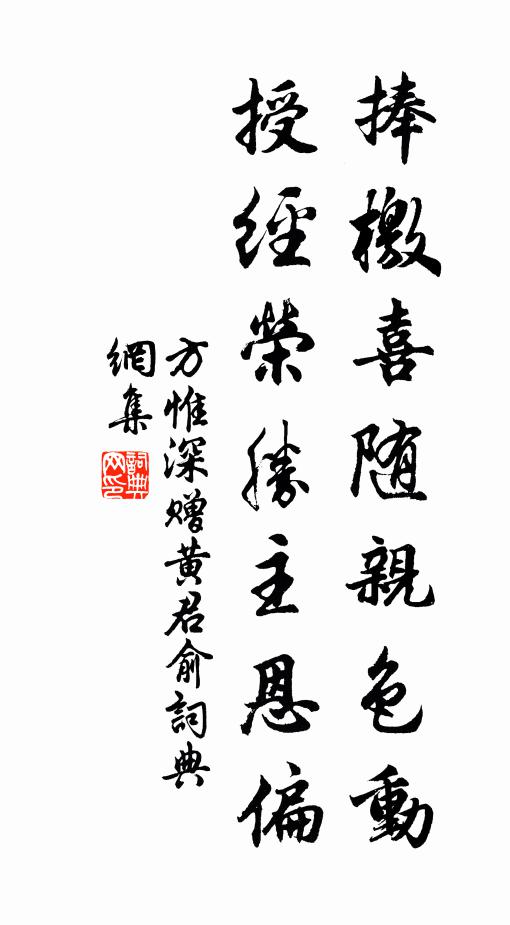 捧檄喜随親色動
授經榮勝主恩偏
方惟深贈黄君俞詞典
網集
詞典
网印